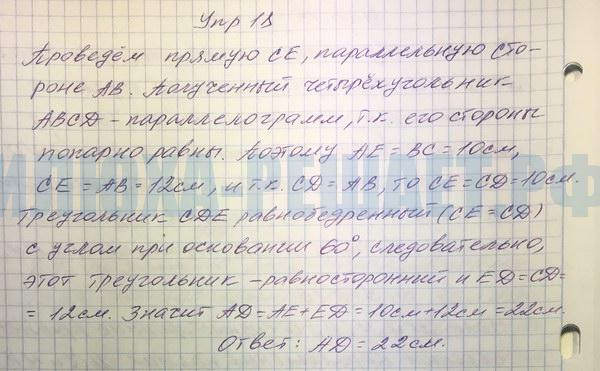 Упр 18
Проведём прямую CE, параллельную сто-
роне AB. Полученный четырёхугольник
ABCD - параллелограмм, т.к. его стороны
попарно равны. Поэтому AE = BC = 10см,
CE = AB = 12см, и т.к. CD = AB, то CE = CD = 10см.
Треугольник CDE равнобедренный (CE = CD)
с углом при основании 60°, следовательно,
этот треугольник - равносторонний и ED = CD =
= 12см. Значит AD = AE + ED = 10см + 12см = 22см.
Ответ: AD = 22см.